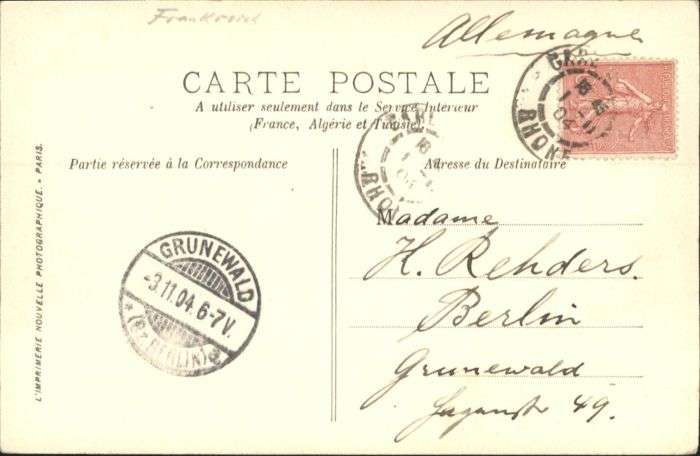 Frankreich
Allemagne
CARTE POSTALE
A utiliser seulement dans le Service Intérieur
(France, Algérie et Tunisie)
Partie réservée à la Correspondance
Adresse du Destinataire
RHONE
16
11
04
RHONE
Madame
H. Rehders.
Berlin
Grunewald
49.
GRUNEWALD
-3.11.04.6-7V.
*(Bz. BERLIN)*
L'IMPRIMERIE NOUVELLE PHOTOGRAPHIQUE. - PARIS.